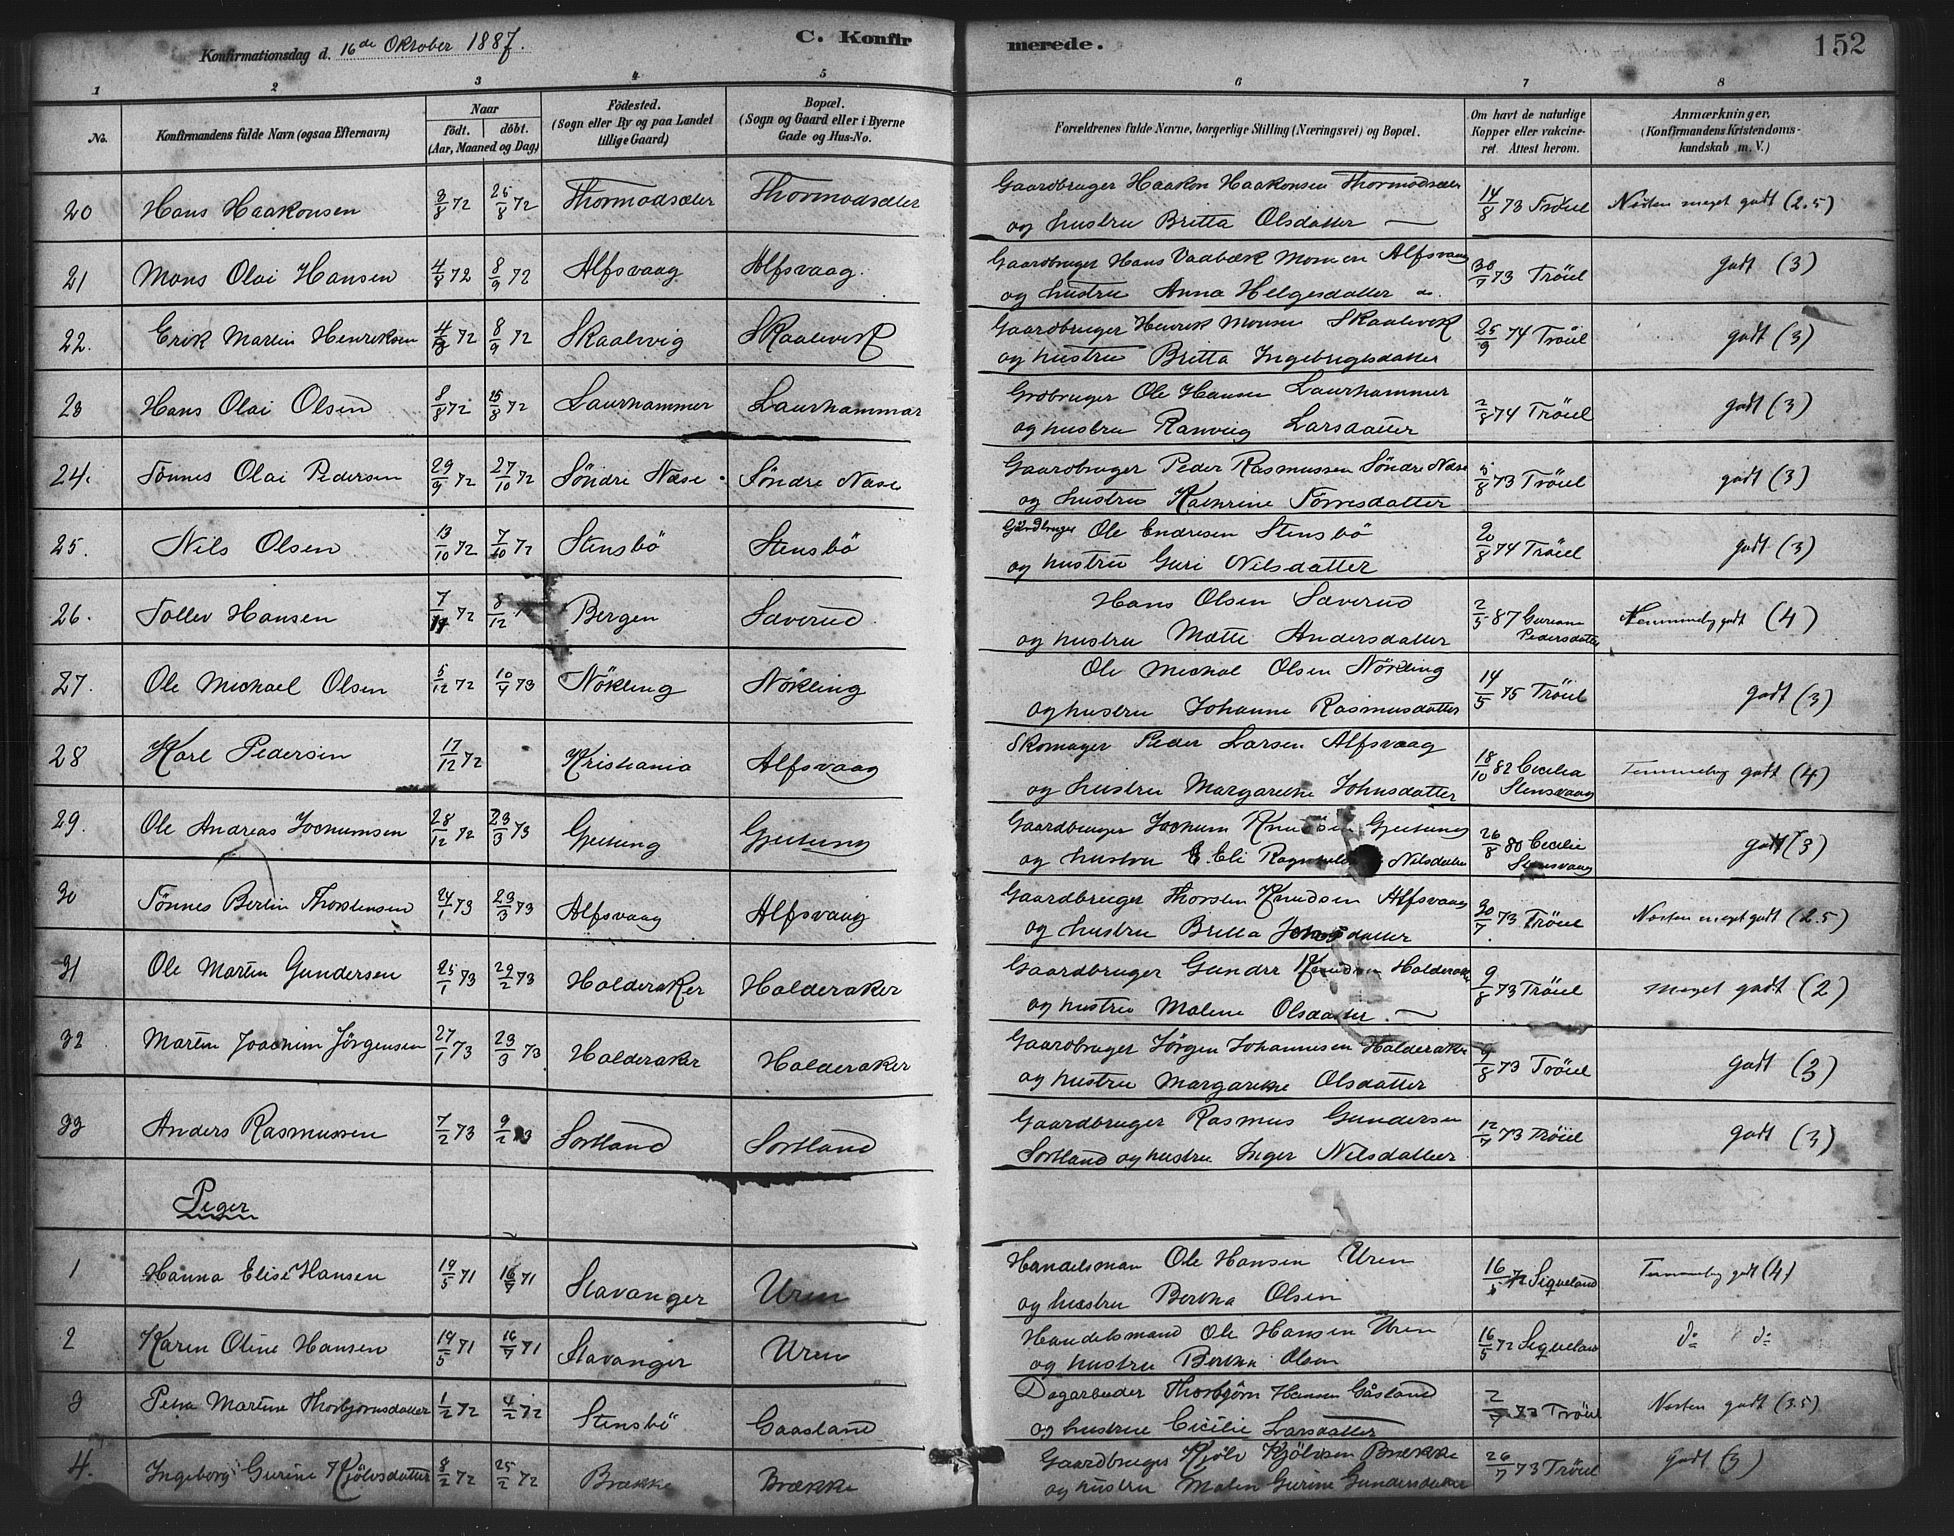 Konfirmationsdag d. 16de Oktober 1887.
C. Konfirmerede.
152
1 2 3 4 5 6 7 8
No.
Konfirmandens fulde Navn (ogsaa Efternavn)
Naar
födt. döbt.
(Aar, Maaned og Dag)
Födested.
(Sogn eller By og paa Landet
tillige Gaard)
Bopæl.
(Sogn og Gaard eller i Byerne
Gade og Hus-No.
Forældrenes fulde Navne, borgerlige Stilling (Næringsvei) og Bopæl.
Om havt de naturlige
Kopper eller vakcine-
ret. Attest herom.
Anmærkninger.
(Konfirmandens Kristendoms-
kundskab m. V.)
20 Hans Haakonsen 3/8 72 25/8 72 Thormodsæter Thormodsæter Gaardbruger Haakon Haakonsen Thormodsæter 14/8 73 Tröiel Næsten meget godt (2.5)
og hustru Britta Olsdatter —
21 Mons Olai Hansen 4/8 72 8/9 72 Alfsvaag Alfsvaag. Gaardbruger Hans Vaabæk Monsen Alfsvaag 30/7 73 Tröiel godt (3)
og hustru Anna Helgesdatter
22. Erik Martin Henriksen 72 8/9 72 Skaalevig Skaalevik Gaardbruger Henrik Monsen Skaalevik 25/9 74 Tröiel godt (3)
og hustru Britta Ingebrigtsdatter
23 Hans Olai Olsen 8/8 72 25/8 72 Laurhammer Laurhammar Grdbruger Ole Hansen Laurhammer 2/8 74 Tröiel godt (3)
og hustru Ranveig Larsdatter
24. Tönnes Olai Pedersen 29/9 72 27/10 72 Söndre Næse. Söndre Næse Gaardbruger Peder Rasmussen Söndre Næse 5/8 73 Tröiel godt (3)
og hustru Kathrine Torresdatter
25. Nils Olsen 13/10 72 7/10 72 Stensbö Stensbö Gaardbruger Ole Endresen Stensbö 20/8 74 Tröiel godt (3)
og hustru Guri Nilsdatter
26. Tollev Hansen 7/11 72 8/12 72 Bergen Sæverud Hans Olsen Sæverud 2/5 87 Guriane Temmelig godt (4)
og hustru Mætte Andersdatter Pedersdatter
27. Ole Michael Olsen 5/12 72 10/4 73 Nökling Nökling Ole Michal Olsen Nökling 14/5 75 Tröiel godt (3)
og hustru Johanne Rasmusdatter
28 Karl Pedersen 17/12 72 Kristiania Alfsvaag Skomager Peder Larsen Alfsvaag 18/10 82 Cecilia Temmelig godt (4)
og hustru Margarethe Johnsdatter Stensvaag
29. Ole Andreas Jochumsen 28/12 72 23/3 73 Gjeitung Gjeitung Gaardbruger Jochum Knudsen Gjeitung 26/8 80 Cecilie godt (3)
og hustru Eli Ragnhild Nilsdatter Stensvaag
30 Tönnes Bertin Thorstensen 24/1 73 23/3 73 Alfsvaag Alfsvaag Gaardbruger Thorsten Knudsen Alfsvaag 30/7 73 Tröiel Næsten meget godt (2.5)
og hustru Britta Johnsdatter
31 Ole Martin Gundersen 25/1 73 22/2 73 Halderaker Halderaker Gaardbruger Gunder Knudsen Halderaker 9/8 73 Tröiel meget godt (2)
og hustru Malene Olsdatter. —
32 Martin Joachim Jörgensen 27/1 73 23/3 73 Halderaker Halderaker Gaardbruger Jörgen Johannesen Halderaker 9/8 73 Tröiel godt (3)
og hustru Margarethe Olsdatter
33 Anders Rasmussen 7/2 73 9/2 73 Sortland Sortland Gaardbruger Rasmus Gundersen 12/7 73 Tröiel godt (3)
Sortland og hustru Inger Nilsdatter
Piger
1 Hanna Elise Hansen 19/5 71 16/7 71 Stavanger Uren Handelsman Ole Hansen Uren 16/5 72 Siqveland Temmelig godt (4)
og hustru Bertha Olsen
2 Karen Oline Hansen 19/5 71 16/7 71 Stavanger Uren Handelsmand Ole Hansen Uren 16/5 72 Siqveland do do
og hustru Bertha Olsen
3 Petra Martine Thorbjörnsdatter 1/2 72 4/2 72 Stensbö Gaasland Dagarbeider Thorbjörn Hansen Gåsland 2/7 73 Tröiel Næsten godt (3.5)
og hustru Cicilie Larsdatter
4. Ingeborg Gurine Kjölvsdatter 8/2 72 25/2 72 Brække Brække Gaardbruger Kjölv Kjölvsen Brække 26/7 73 Tröiel Godt (3)
og hustru Malen Gurine Gundersdatter